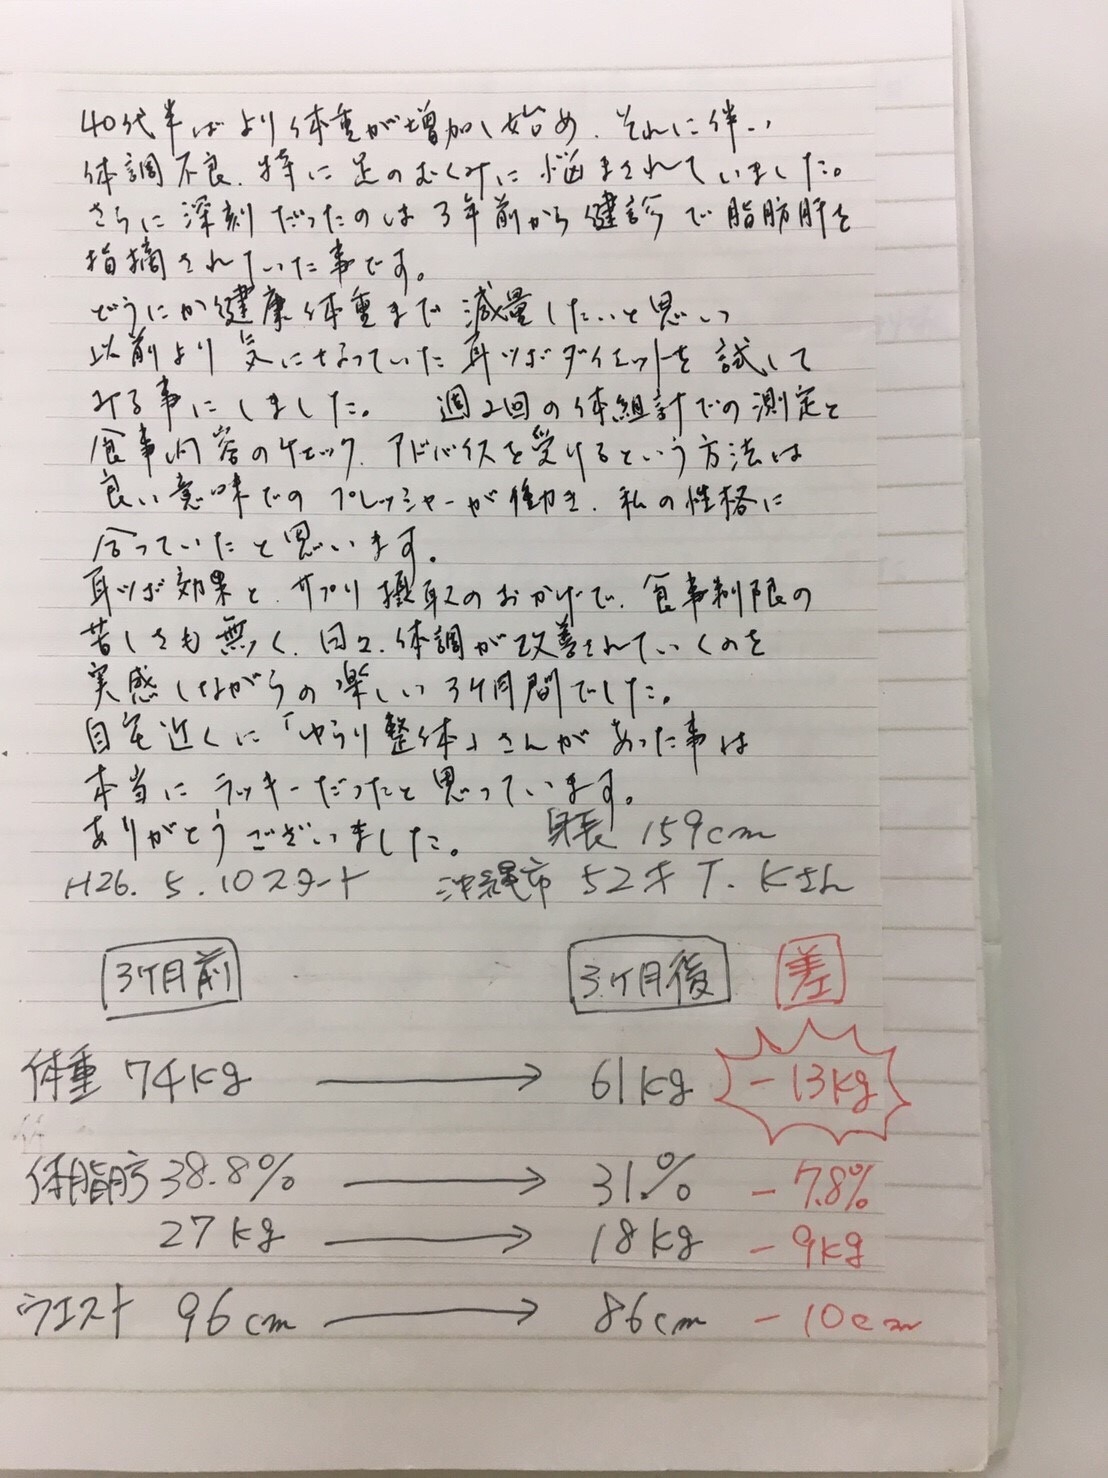 40代半ばより体重が増加し始め、それに伴い
体調不良、特に足のむくみに悩まされていました。
さらに深刻だったのは3年前から健診で脂肪肝を
指摘されていた事です。
どうにか健康体重まで減量したいと思い
以前より気になっていた耳ツボダイエットを試して
みる事にしました。 週2回の体組計での測定と
食事内容のチェック、アドバイスを受けるという方法は
良い意味でのプレッシャーが働き、私の性格に
合っていたと思います。
耳ツボ効果と、サプリ摂取のおかげで、食事制限の
苦しさも無く、日々、体調が改善されていくのを
実感しながらの楽しい3ケ月間でした。
自宅近くに「ゆうり整体」さんがあった事は
本当にラッキーだったと思っています。
ありがとうございました。 身長 159cm
H26.5.10スタート 沖縄市 52才 T.Kさん
3ケ月前 3ケ月後 差
体重 74kg → 61kg -13kg
体脂肪 38.8% → 31.% -7.8%
27kg → 18kg -9kg
ウエスト 96cm → 86cm -10cm